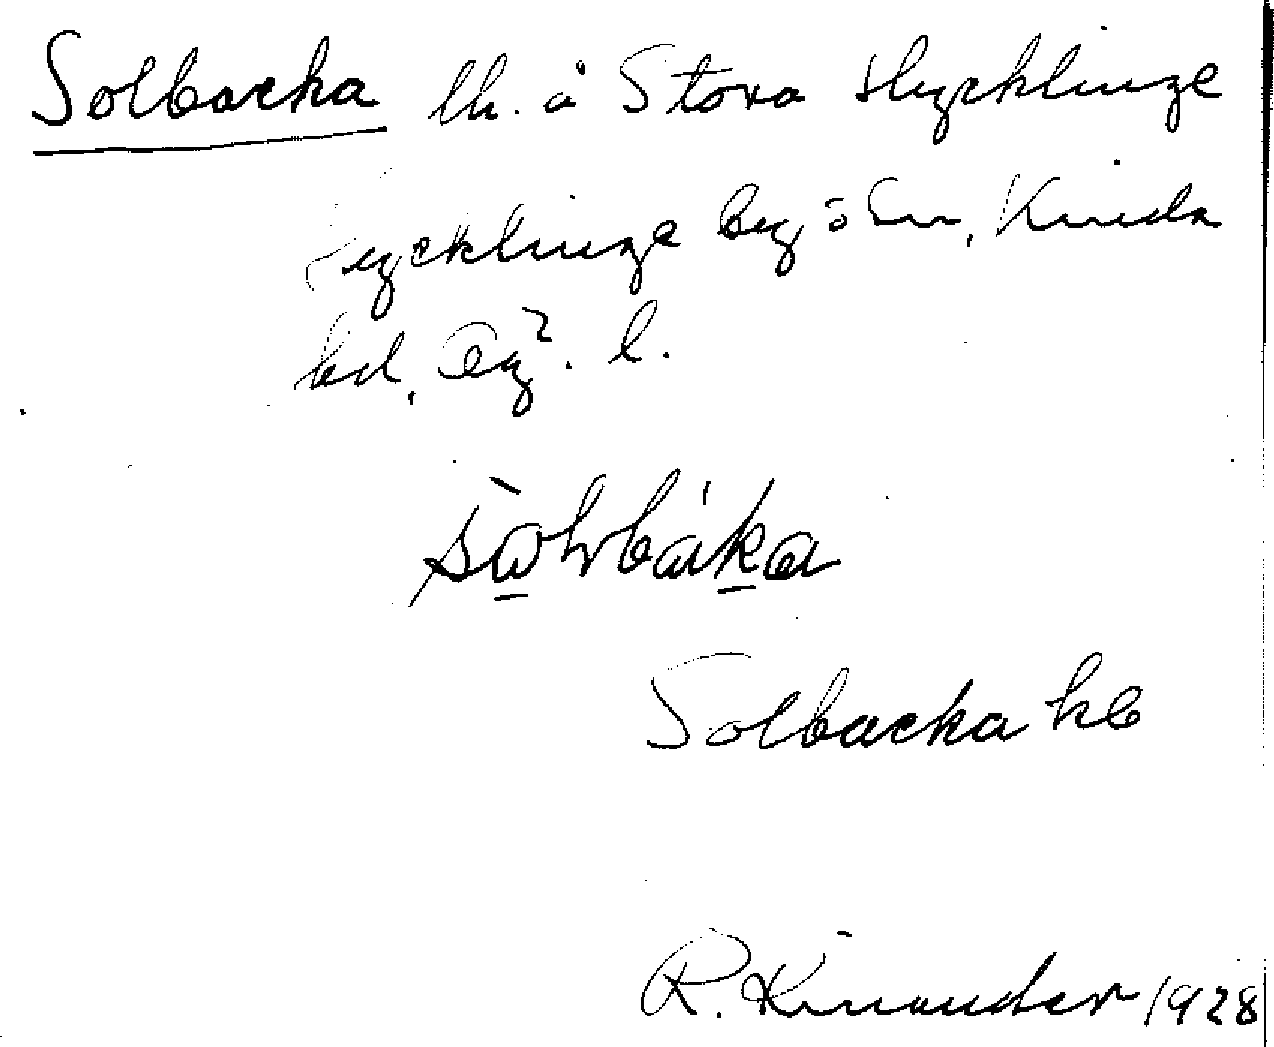 Solbacka lh. å Stora Hycklinge
Hycklinge by o sn, Kinda
hd, Ög. l.
Solbacka kb
R. Kinander 1928